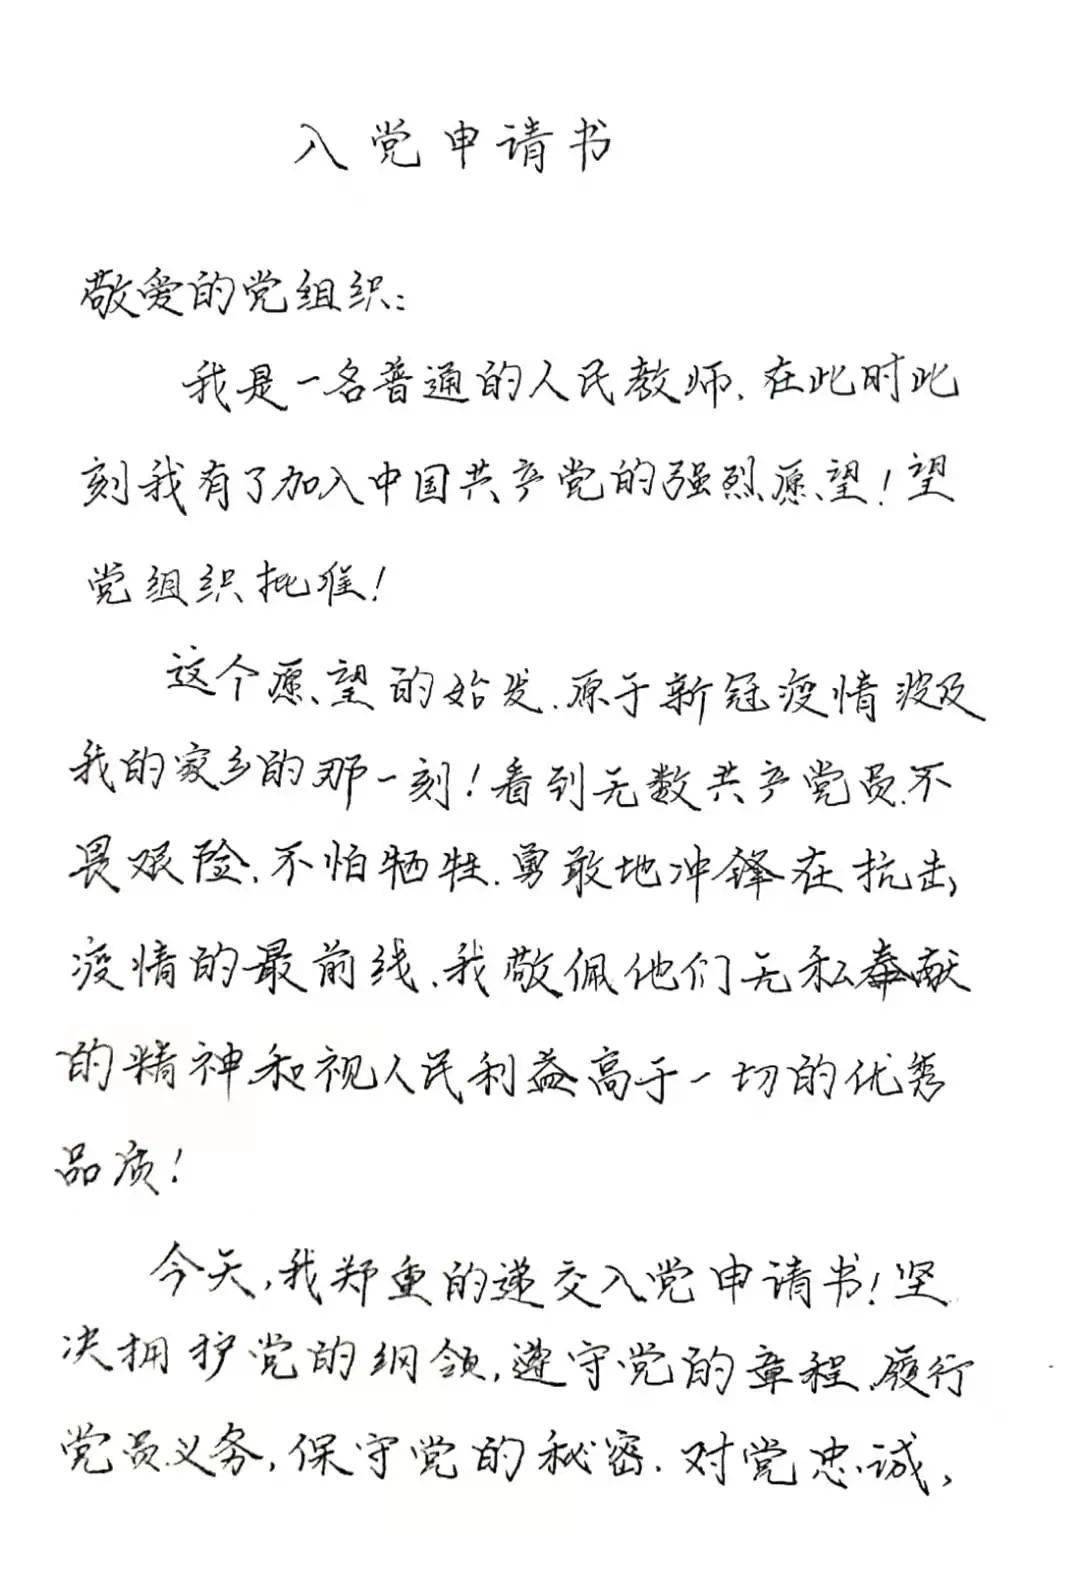 入党申请书
敬爱的党组织:
我是一名普通的人民教师.在此时此
刻我有了加入中国共产党的强烈愿望!望
党组织批准!
这个愿望的始发.原于新冠疫情波及
我的家乡的那一刻!看到无数共产党员.不
畏艰险.不怕牺牲.勇敢地冲锋在抗击
疫情的最前线.我敬佩他们无私奉献
的精神和视人民利益高于一切的优秀
品质!
今天,我郑重的递交入党申请书!坚
决拥护党的纲领,遵守党的章程.履行
党员义务,保守党的秘密.对党忠诚,